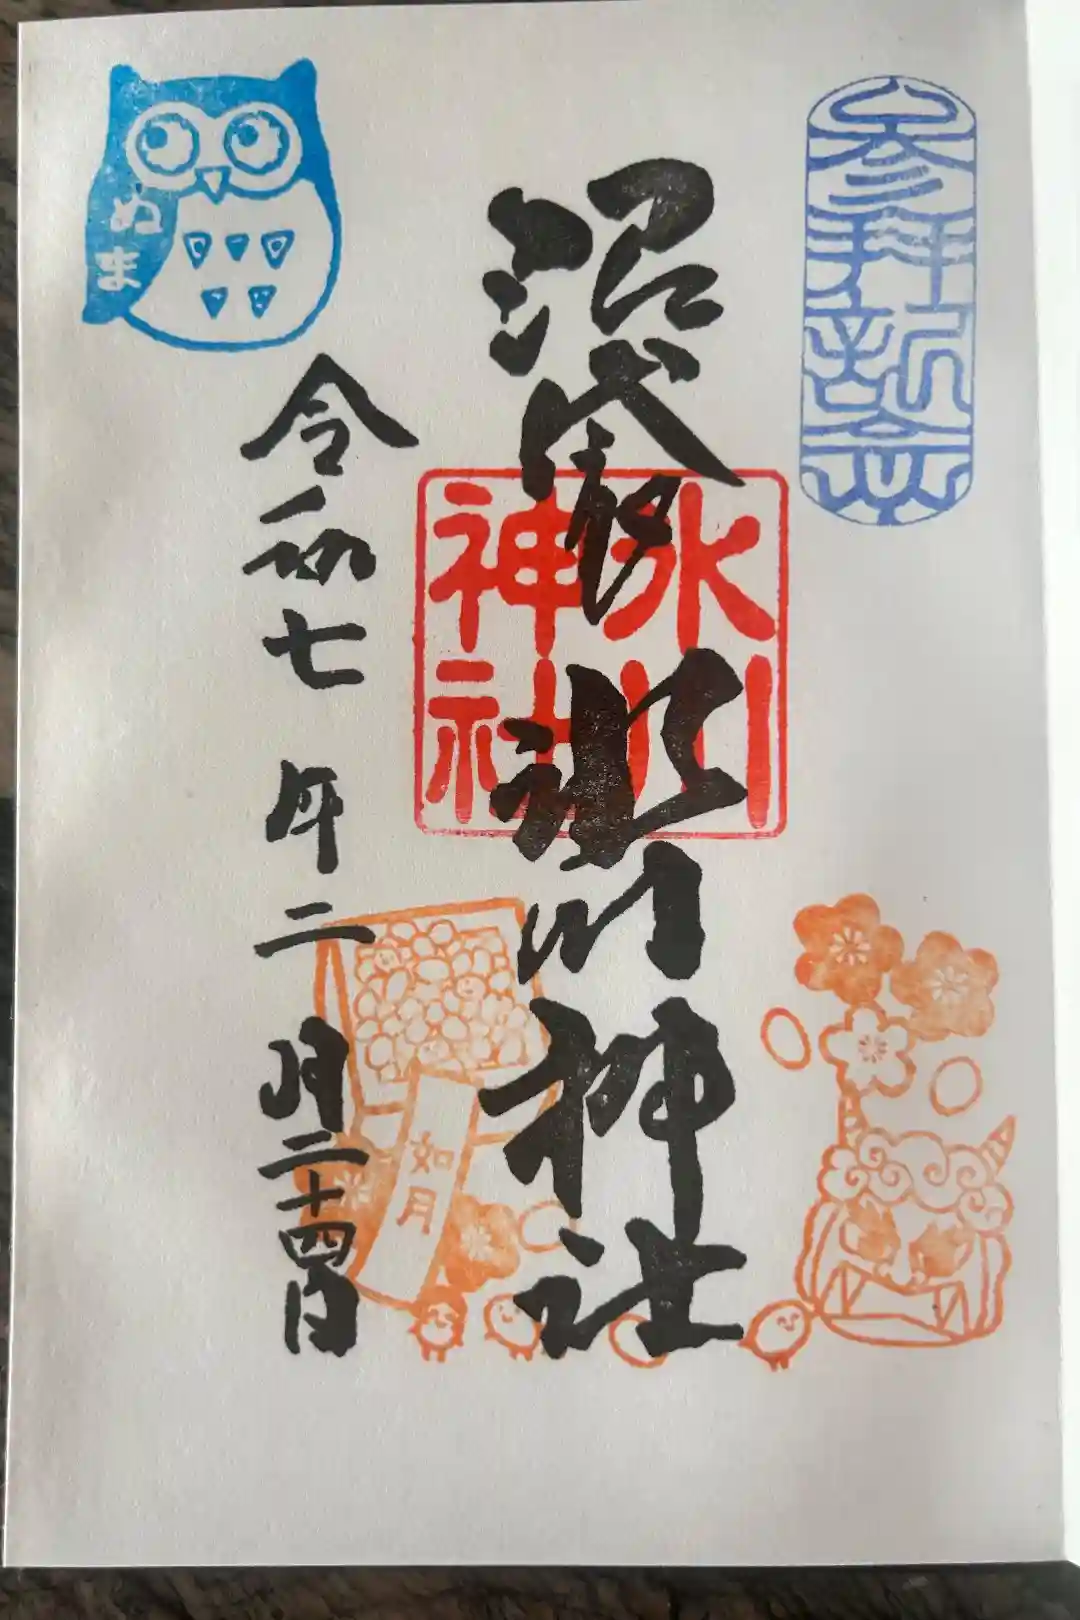 参拝祈念
沼袋氷川神社
氷川
神社
令和七年二月二十四日
ぬま
如月